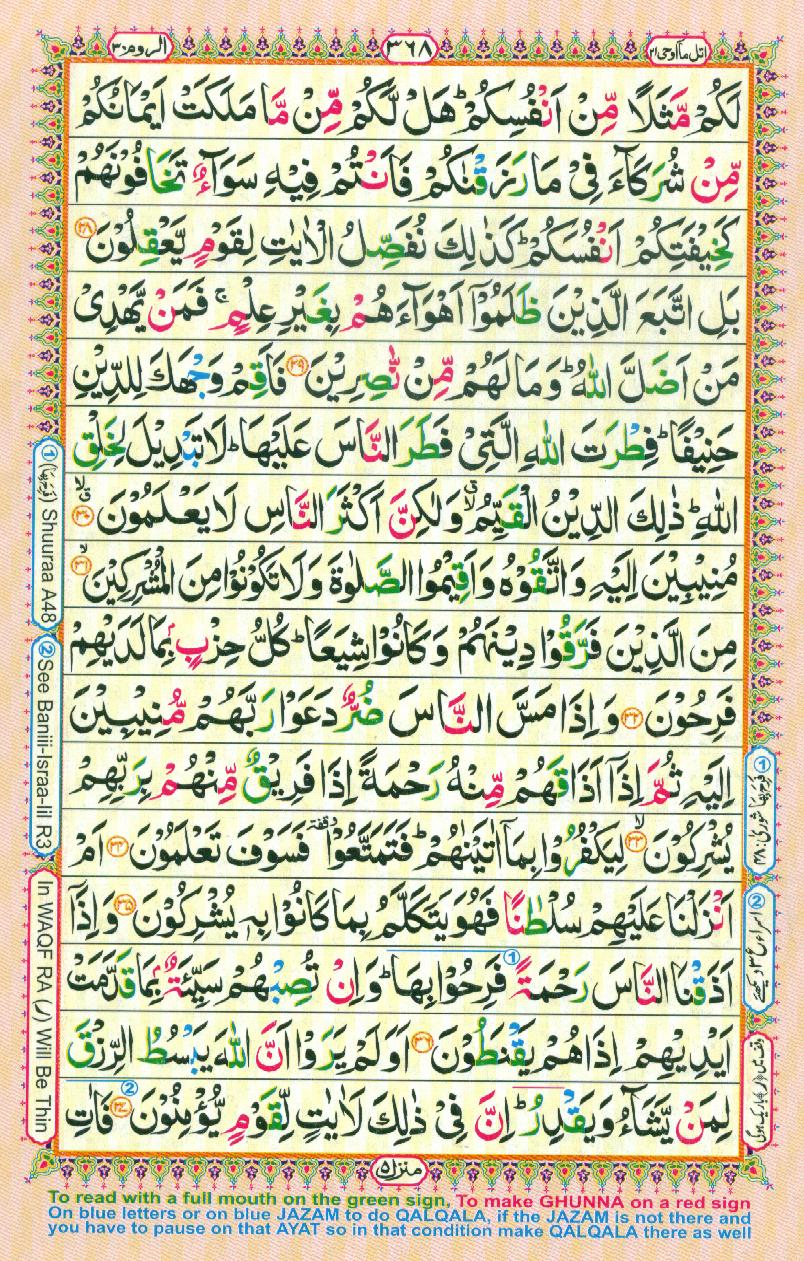 اتل ما اوحی ۲۱
۳۶۸
الروم ۳۰
لَكُمْ مَّثَلًا مِّنْ اَنْفُسِكُمْ ؕ هَلْ لَّكُمْ مِّنْ مَّا مَلَكَتْ اَيْمَانُكُمْ
مِّنْ شُرَكَآءَ فِیْ مَا رَزَقْنٰكُمْ فَاَنْتُمْ فِيْهِ سَوَآءٌ تَخَافُوْنَهُمْ
كَخِيْفَتِكُمْ اَنْفُسَكُمْ ؕ كَذٰلِكَ نُفَصِّلُ الْاٰيٰتِ لِقَوْمٍ يَّعْقِلُوْنَ ۲۸
بَلِ اتَّبَعَ الَّذِيْنَ ظَلَمُوْۤا اَهْوَآءَهُمْ بِغَيْرِ عِلْمٍ ۚ فَمَنْ يَّهْدِیْ
مَنْ اَضَلَّ اللّٰهُ ؕ وَمَا لَهُمْ مِّنْ نّٰصِرِيْنَ ۲۹ فَاَقِمْ وَجْهَكَ لِلدِّيْنِ
حَنِيْفًا ؕ فِطْرَتَ اللّٰهِ الَّتِیْ فَطَرَ النَّاسَ عَلَيْهَا ؕ لَا تَبْدِيْلَ لِخَلْقِ
اللّٰهِ ؕ ذٰلِكَ الدِّيْنُ الْقَيِّمُ ۙۗ وَلٰكِنَّ اَكْثَرَ النَّاسِ لَا يَعْلَمُوْنَ ۳۰ ۗۙ
مُنِيْبِيْنَ اِلَيْهِ وَاتَّقُوْهُ وَاَقِيْمُوا الصَّلٰوةَ وَلَا تَكُوْنُوْا مِنَ الْمُشْرِكِيْنَ ۳۱ ۙ
مِنَ الَّذِيْنَ فَرَّقُوْا دِيْنَهُمْ وَكَانُوْا شِيَعًا ؕ كُلُّ حِزْبٍۭ بِمَا لَدَيْهِمْ
فَرِحُوْنَ ۳۲ وَاِذَا مَسَّ النَّاسَ ضُرٌّ دَعَوْا رَبَّهُمْ مُّنِيْبِيْنَ
اِلَيْهِ ثُمَّ اِذَاۤ اَذَاقَهُمْ مِّنْهُ رَحْمَةً اِذَا فَرِيْقٌ مِّنْهُمْ بِرَبِّهِمْ
يُشْرِكُوْنَ ۳۳ ۙ لِيَكْفُرُوْا بِمَاۤ اٰتَيْنٰهُمْ ؕ فَتَمَتَّعُوْا وقفة فَسَوْفَ تَعْلَمُوْنَ ۳۴ اَمْ
اَنْزَلْنَا عَلَيْهِمْ سُلْطٰنًا فَهُوَ يَتَكَلَّمُ بِمَا كَانُوْا بِهٖ يُشْرِكُوْنَ ۳۵ وَاِذَاۤ
اَذَقْنَا النَّاسَ رَحْمَةً ① فَرِحُوْا بِهَا ؕ وَاِنْ تُصِبْهُمْ سَيِّئَةٌۢ بِمَا قَدَّمَتْ
اَيْدِيْهِمْ اِذَا هُمْ يَقْنَطُوْنَ ۳۶ اَوَلَمْ يَرَوْا اَنَّ اللّٰهَ يَبْسُطُ الرِّزْقَ
لِمَنْ يَّشَآءُ وَيَقْدِرُ ؕ اِنَّ فِیْ ذٰلِكَ لَاٰيٰتٍ لِّقَوْمٍ يُّؤْمِنُوْنَ ۳۷ ② فَاٰتِ
① (فَرِحَ بِهَا) Shuuraa A48
② See Baniii-Israa-iil R3
In WAQF RA (ر) Will Be Thin
① فَرِحَ بِهَا شوریٰ: ۴۸
منزل ۵
To read with a full mouth on the green sign, To make GHUNNA on a red sign
On blue letters or on blue JAZAM to do QALQALA, if the JAZAM is not there and
you have to pause on that AYAT so in that condition make QALQALA there as well